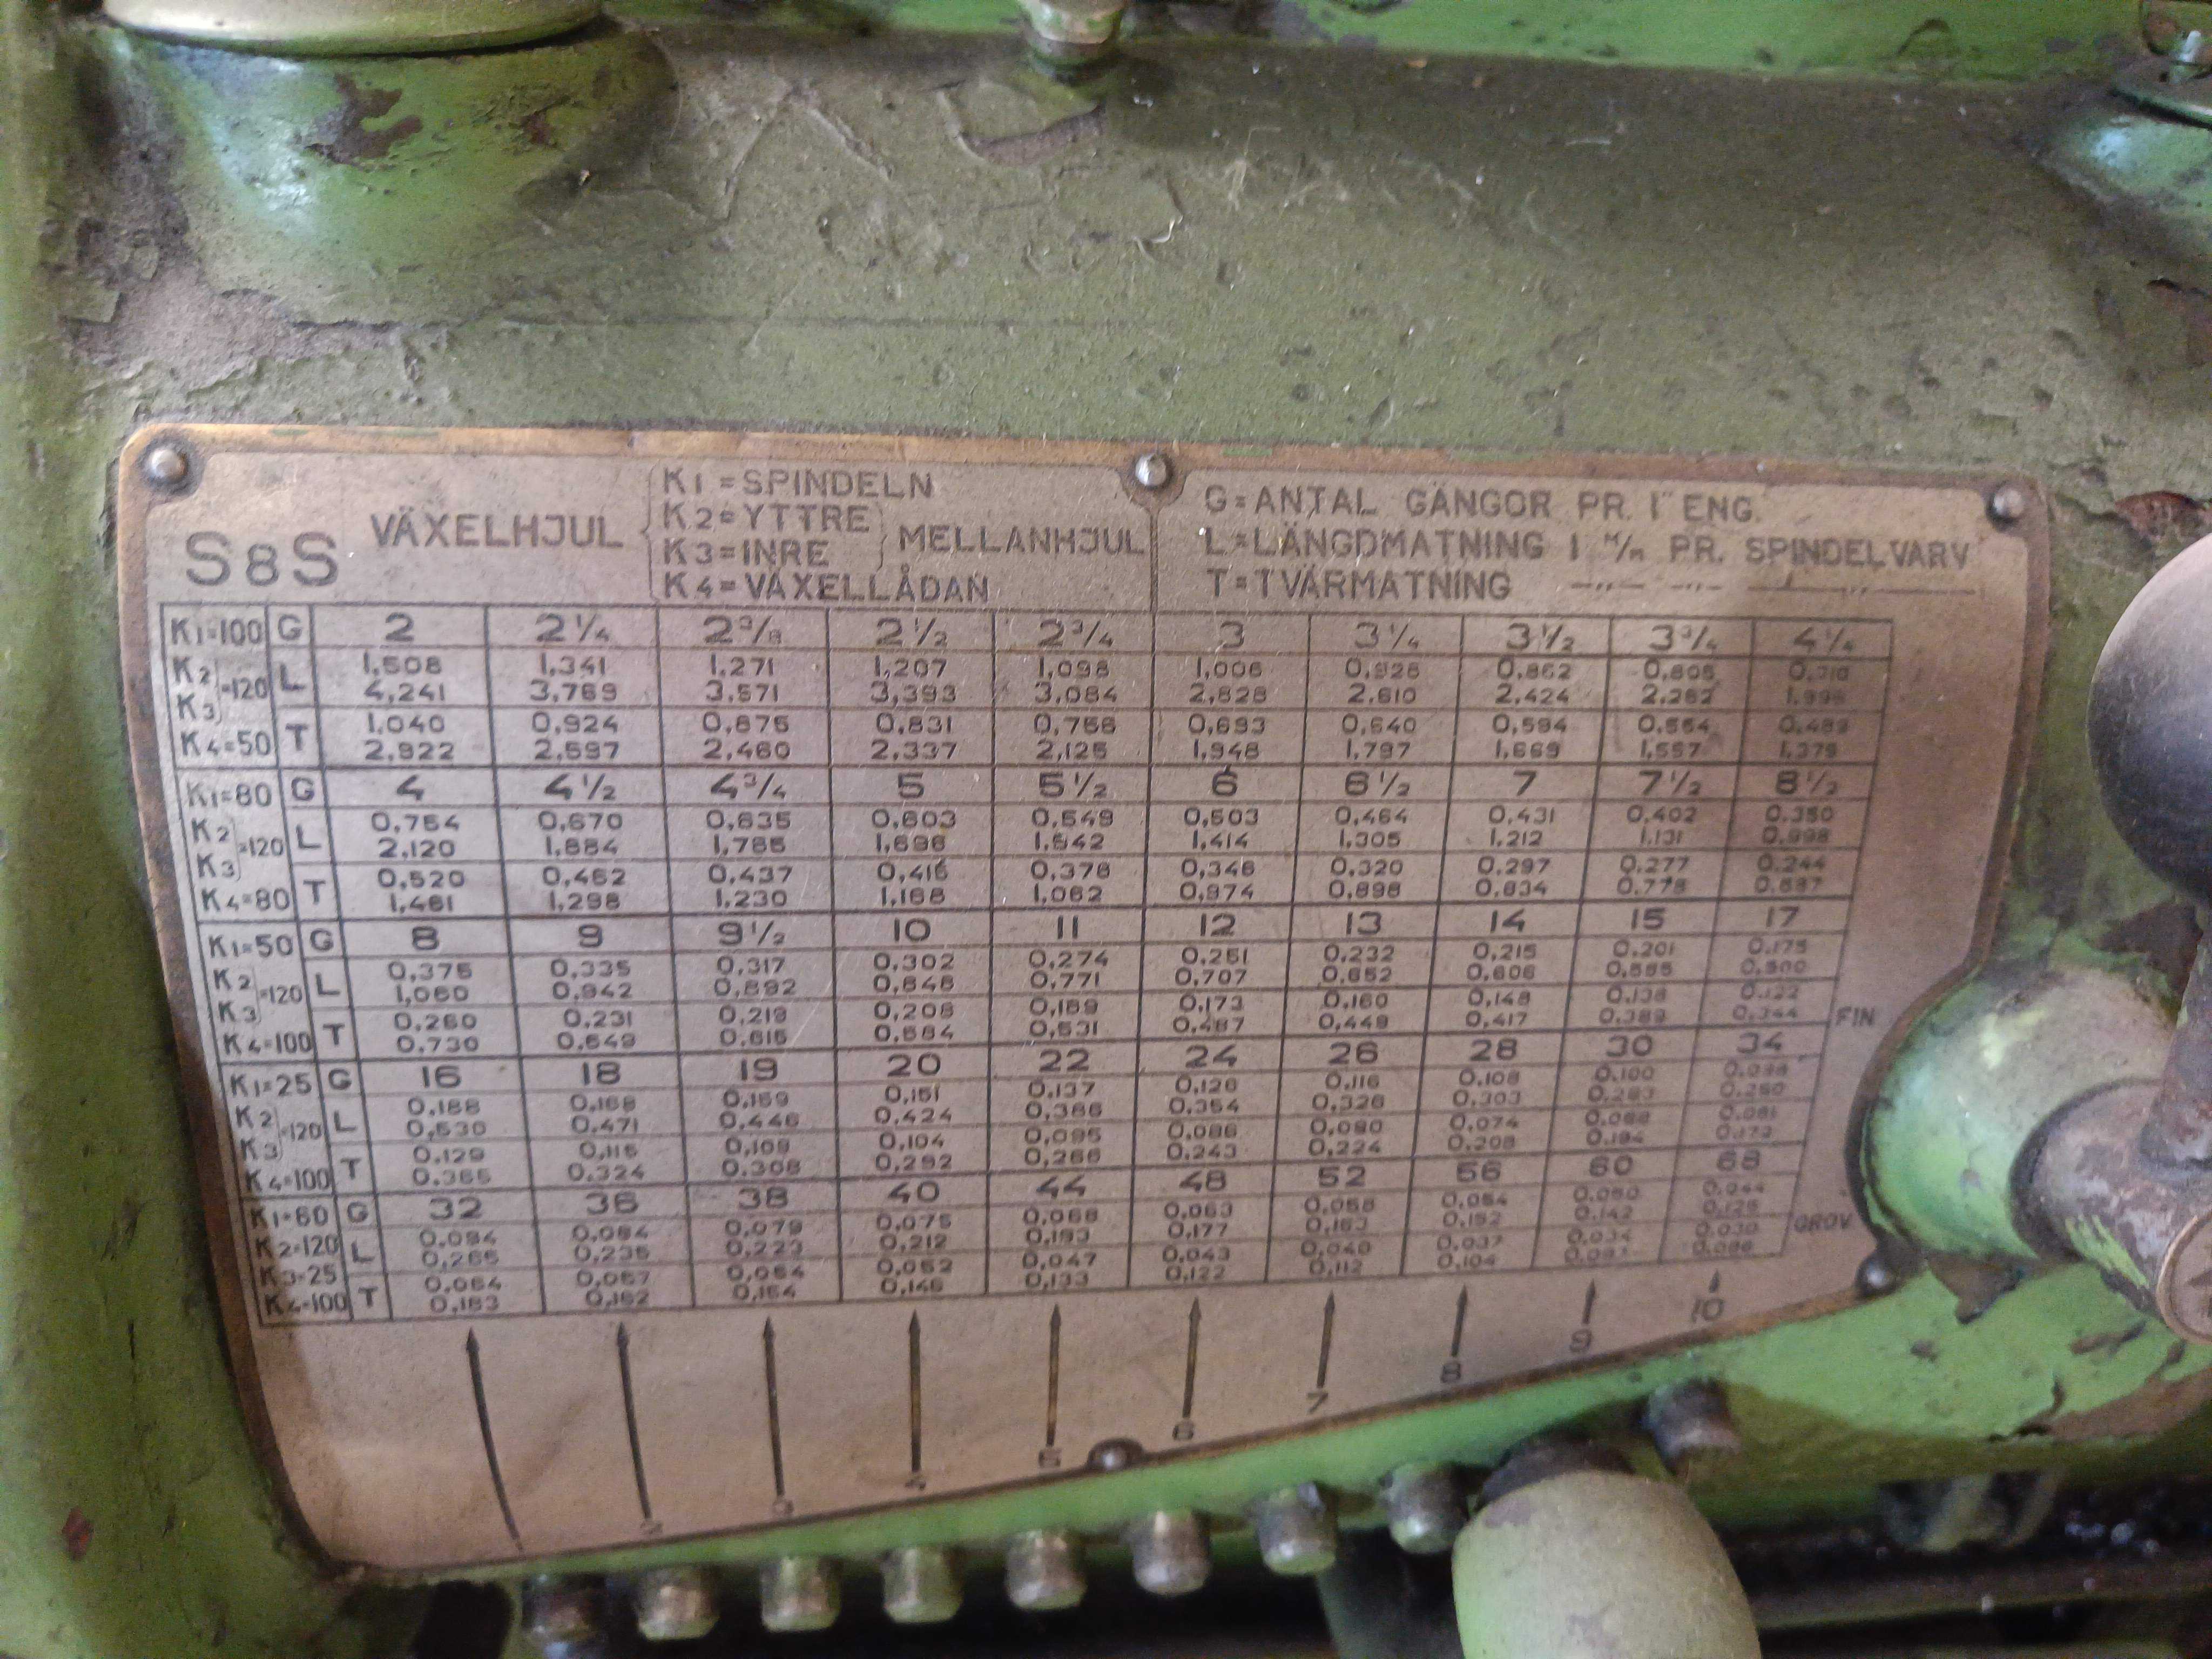 S8S VÄXELHJUL
K1=SPINDELN
K2=YTTRE
K3=INRE
MELLANHJUL
K4=VÄXELLÅDAN
G=ANTAL GÄNGOR PR. 1" ENG.
L=LÄNGDMATNING I M/M PR. SPINDELVARV
T=TVÄRMATNING —„— —„— —„—
K1=100 G 2 2¼ 2⅜ 2½ 2¾ 3 3¼ 3½ 3¾ 4¼
K2 K3 =120 L 1,508 1,341 1,271 1,207 1,098 1,006 0,928 0,862 0,805 0,710
4,241 3,769 3,571 3,393 3,084 2,828 2,610 2,424 2,262 1,996
K4=50 T 1,040 0,924 0,875 0,831 0,756 0,693 0,640 0,594 0,554 0,489
2,922 2,597 2,460 2,337 2,125 1,948 1,797 1,669 1,557 1,375
K1=80 G 4 4½ 4¾ 5 5½ 6 6½ 7 7½ 8½
K2 K3 =120 L 0,754 0,670 0,635 0,603 0,549 0,503 0,464 0,431 0,402 0,350
2,120 1,884 1,785 1,696 1,542 1,414 1,305 1,212 1,131 0,998
K4=80 T 0,520 0,462 0,437 0,416 0,378 0,346 0,320 0,297 0,277 0,244
1,461 1,298 1,230 1,168 1,062 0,974 0,898 0,834 0,778 0,687
K1=50 G 8 9 9½ 10 11 12 13 14 15 17
K2 K3 =120 L 0,375 0,335 0,317 0,302 0,274 0,251 0,232 0,215 0,201 0,175
1,060 0,942 0,892 0,848 0,771 0,707 0,652 0,606 0,565 0,500
K4=100 T 0,260 0,231 0,219 0,208 0,189 0,173 0,160 0,148 0,138 0,122
0,730 0,649 0,615 0,584 0,531 0,487 0,449 0,417 0,389 0,344 FIN
K1=25 G 16 18 19 20 22 24 26 28 30 34
K2 K3 =120 L 0,188 0,168 0,159 0,151 0,137 0,126 0,116 0,108 0,100
0,530 0,471 0,446 0,424 0,386 0,354 0,326 0,303 0,283 0,250
K4=100 T 0,129 0,115 0,109 0,104 0,095 0,086 0,080 0,074 0,061
0,365 0,324 0,308 0,292 0,266 0,243 0,224 0,208 0,194 0,172
K1=60 G 32 36 38 40 44 48 52 56 60 68
K2=120 L 0,094 0,084 0,079 0,075 0,068 0,063 0,058 0,054 0,050 0,044
K3=25 0,265 0,235 0,223 0,212 0,193 0,177 0,163 0,152 0,142 0,125
K4=100 T 0,064 0,057 0,054 0,052 0,047 0,043 0,040 0,037 0,034 0,030
0,183 0,162 0,154 0,146 0,133 0,122 0,112 0,104 GROV
1 2 3 4 5 6 7 8 9 10